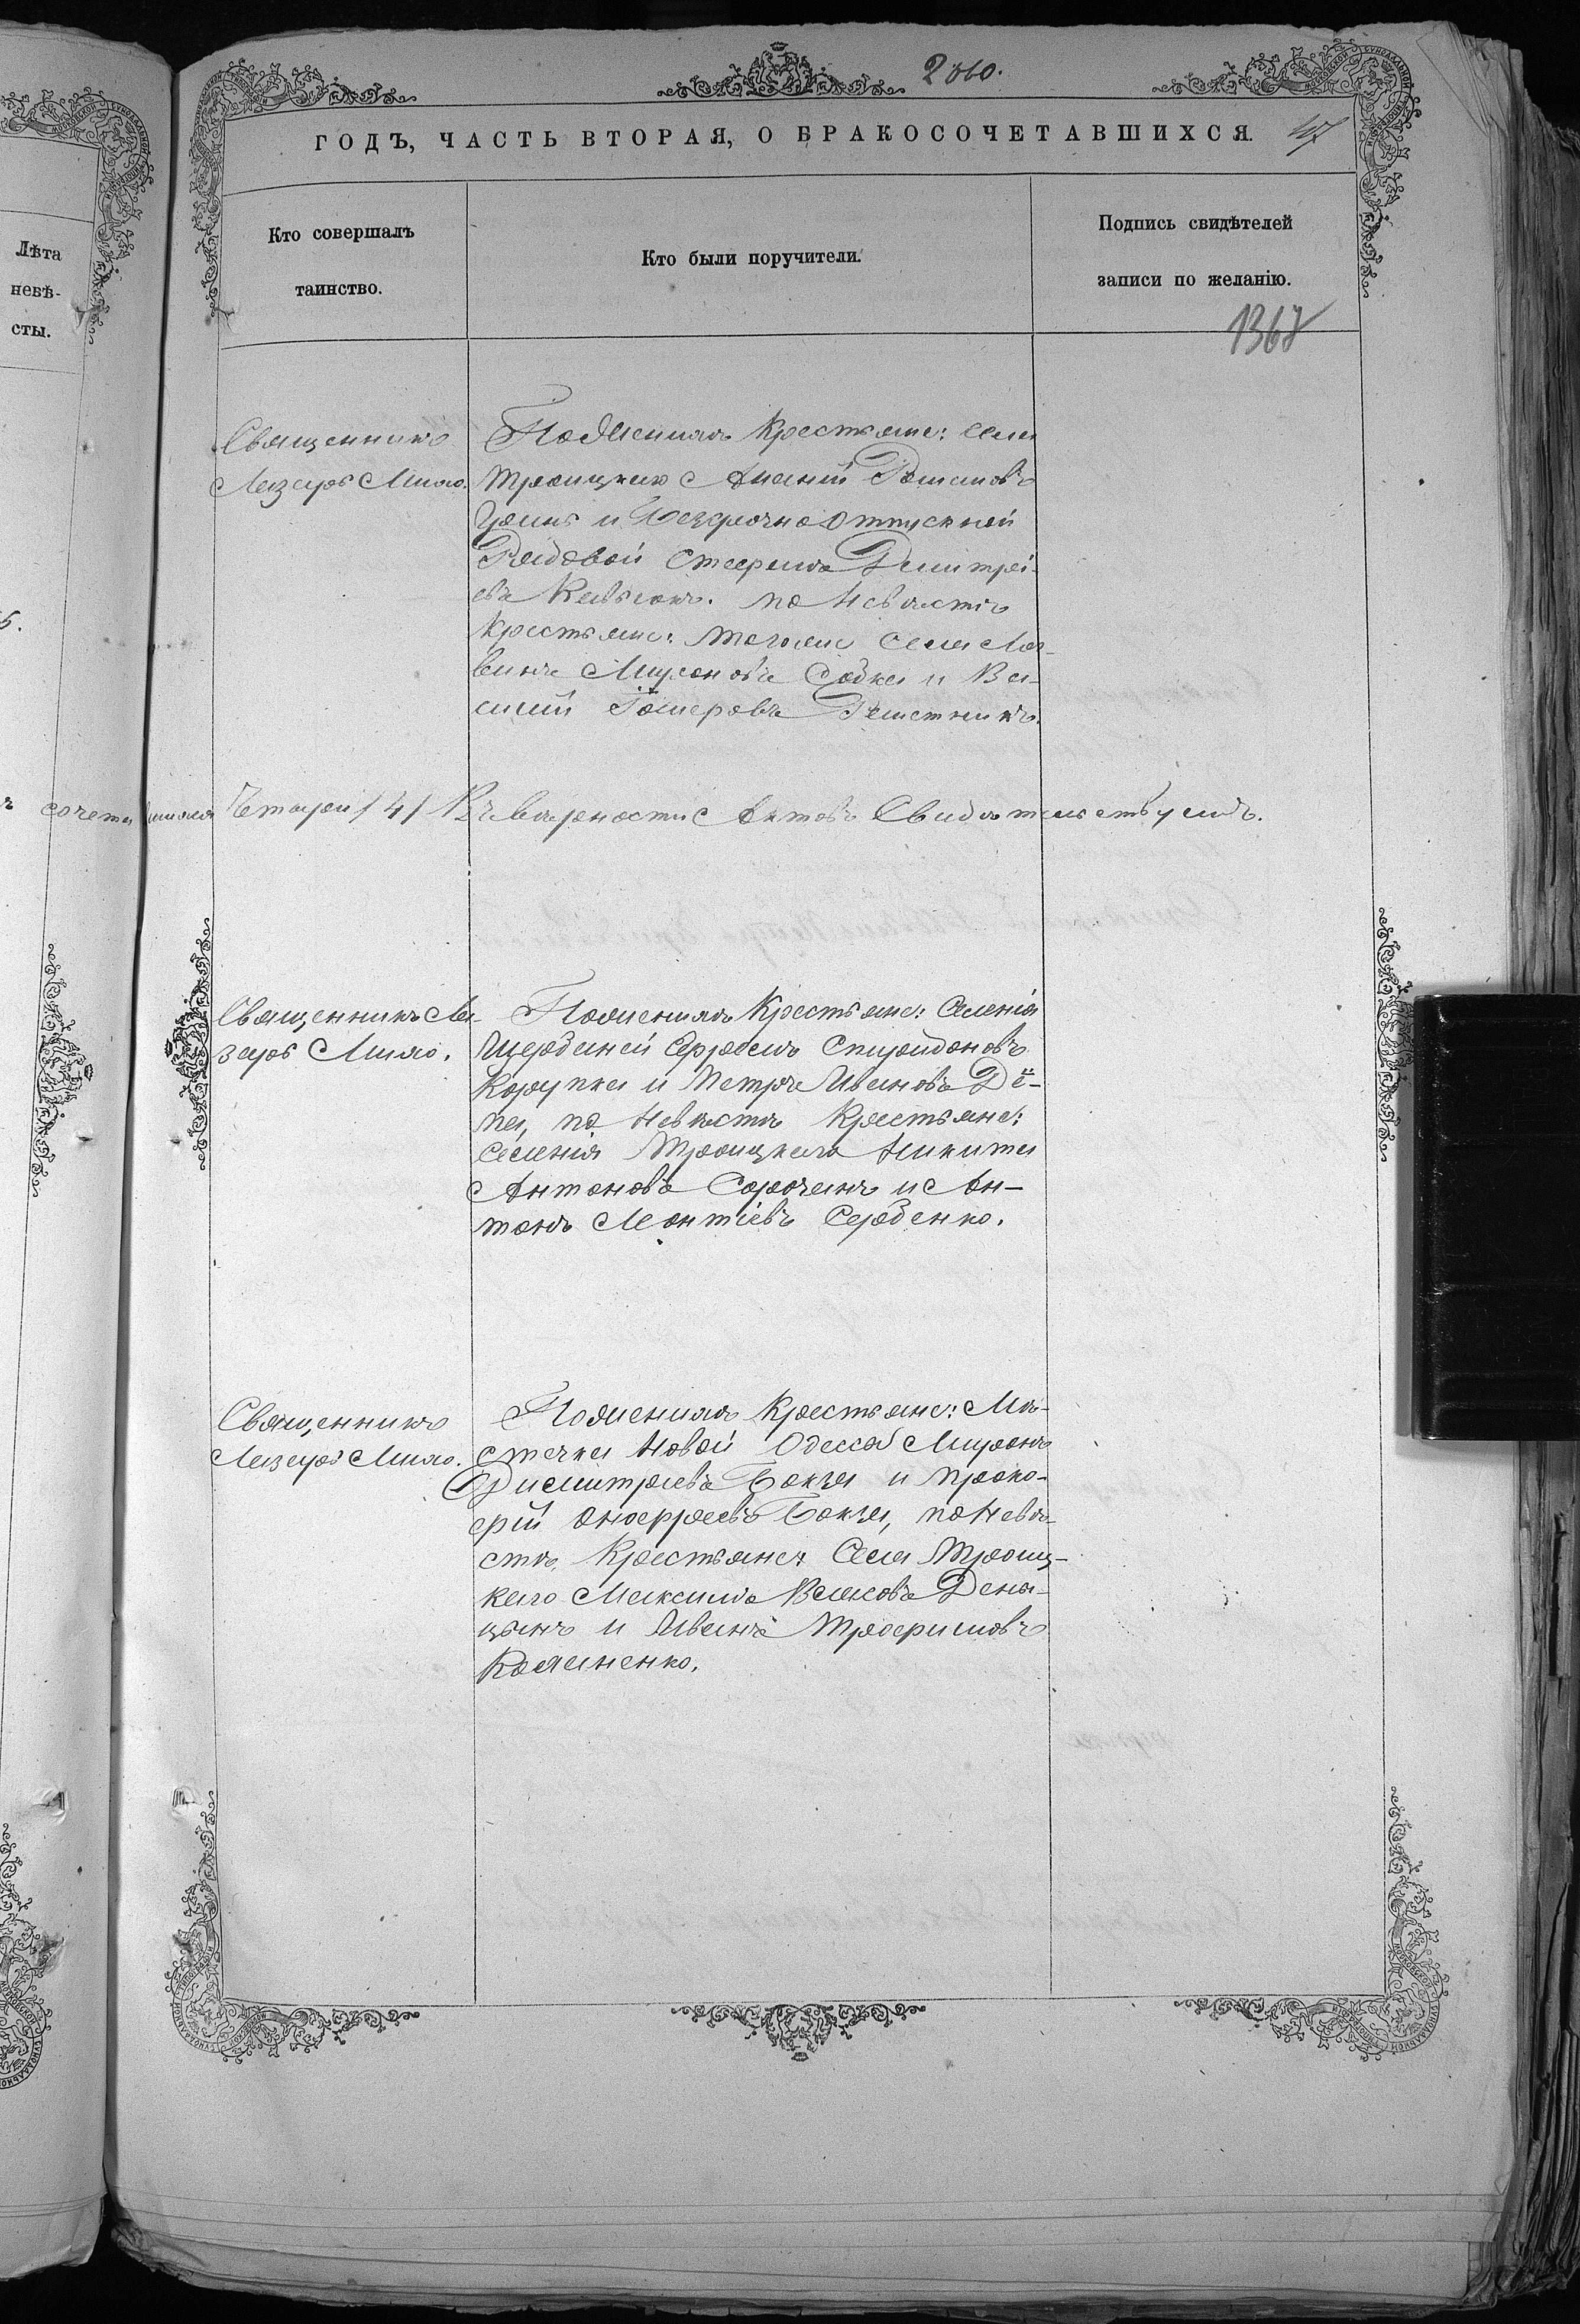 2060.
ГОДЪ, ЧАСТЬ ВТОРАЯ, О БРАКОСОЧЕТАВШИХСЯ.
Лѣта
невѣ-
сты.
Кто совершалъ
таинство.
Кто были поручители.
Подпись свидѣтелей
записи по желанію.
1367
Священникъ
Лазарь Мило.
По Женихѣ Крестьяне: села
Троицкаго Ананій Романовъ
и безсрочно отпускной
Рядовой Стефанъ Дмитрі-
евъ по Невѣстѣ
Крестьяне: тогоже села Ло-
гвинъ Мироновъ Собка и Ва-
силій
сочета лися Четыри /4/ Въ вѣрности Актовъ Свидѣтельствуемъ.
Священникъ Ла-
зарь Мило.
По Женихѣ Крестьяне: Селенія
Щербаней Спиридоновъ
Корупка и Петръ Ивановъ
по Невѣстѣ Крестьяне:
Селенія Троицкаго Никита
Антоновъ Сорочанъ и Ан-
тонъ Леонтіевъ Сербенко.
Священникъ
Лазарь Мило.
По Женихѣ Крестьяне: Мѣ-
стечка Новой Одессы Миронъ
Димитріевъ Бокза и Проко-
фій Онофріевъ Бокза, по Невѣ-
стѣ, Крестьяне: Села Троиц-
каго Максимъ Власовъ Дени-
щенъ и Иванъ Трофимовъ
Кожиненко.